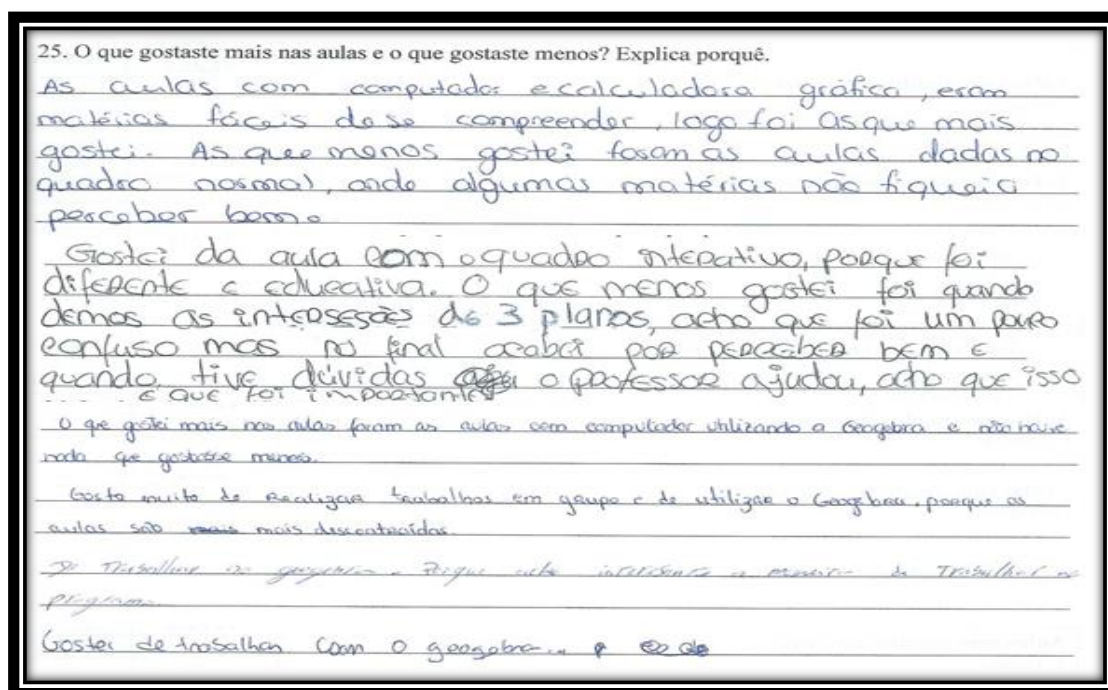 25. O que gostaste mais nas aulas e o que gostaste menos? Explica porquê.
As aulas com computador e calculadora gráfica, eram
matérias fáceis de se compreender, logo foi as que mais
gostei. As que menos gostei foram as aulas dadas no
quadro normal, onde algumas matérias não fiquei a
perceber bem.
Gostei da aula com o quadro interativo, porque foi
diferente e educativa. O que menos gostei foi quando
demos as interseções de 3 planos, acho que foi um pouco
confuso mas no final acabei por perceber bem e
quando tive dúvidas o professor ajudou, acho que isso
é que foi importante
O que gostei mais nas aulas foram as aulas com computador utilizando o Geogebra e não houve
nada que gostasse menos.
Gosto muito de realizar trabalhos em grupo e de utilizar o Geogebra, porque as
aulas são mais descontraídas.
De Trabalhar no geogebra. Porque acho interessante a maneira de Trabalhar no
programa.
Gostei de trabalhar com o geogebra..